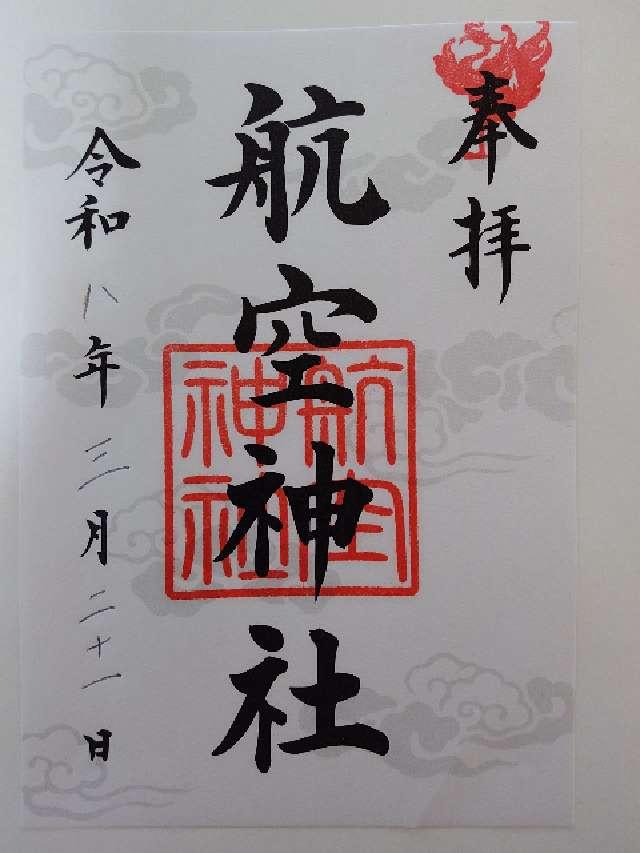 奉拝
航空神社
航空神社
令和八年三月二十一日